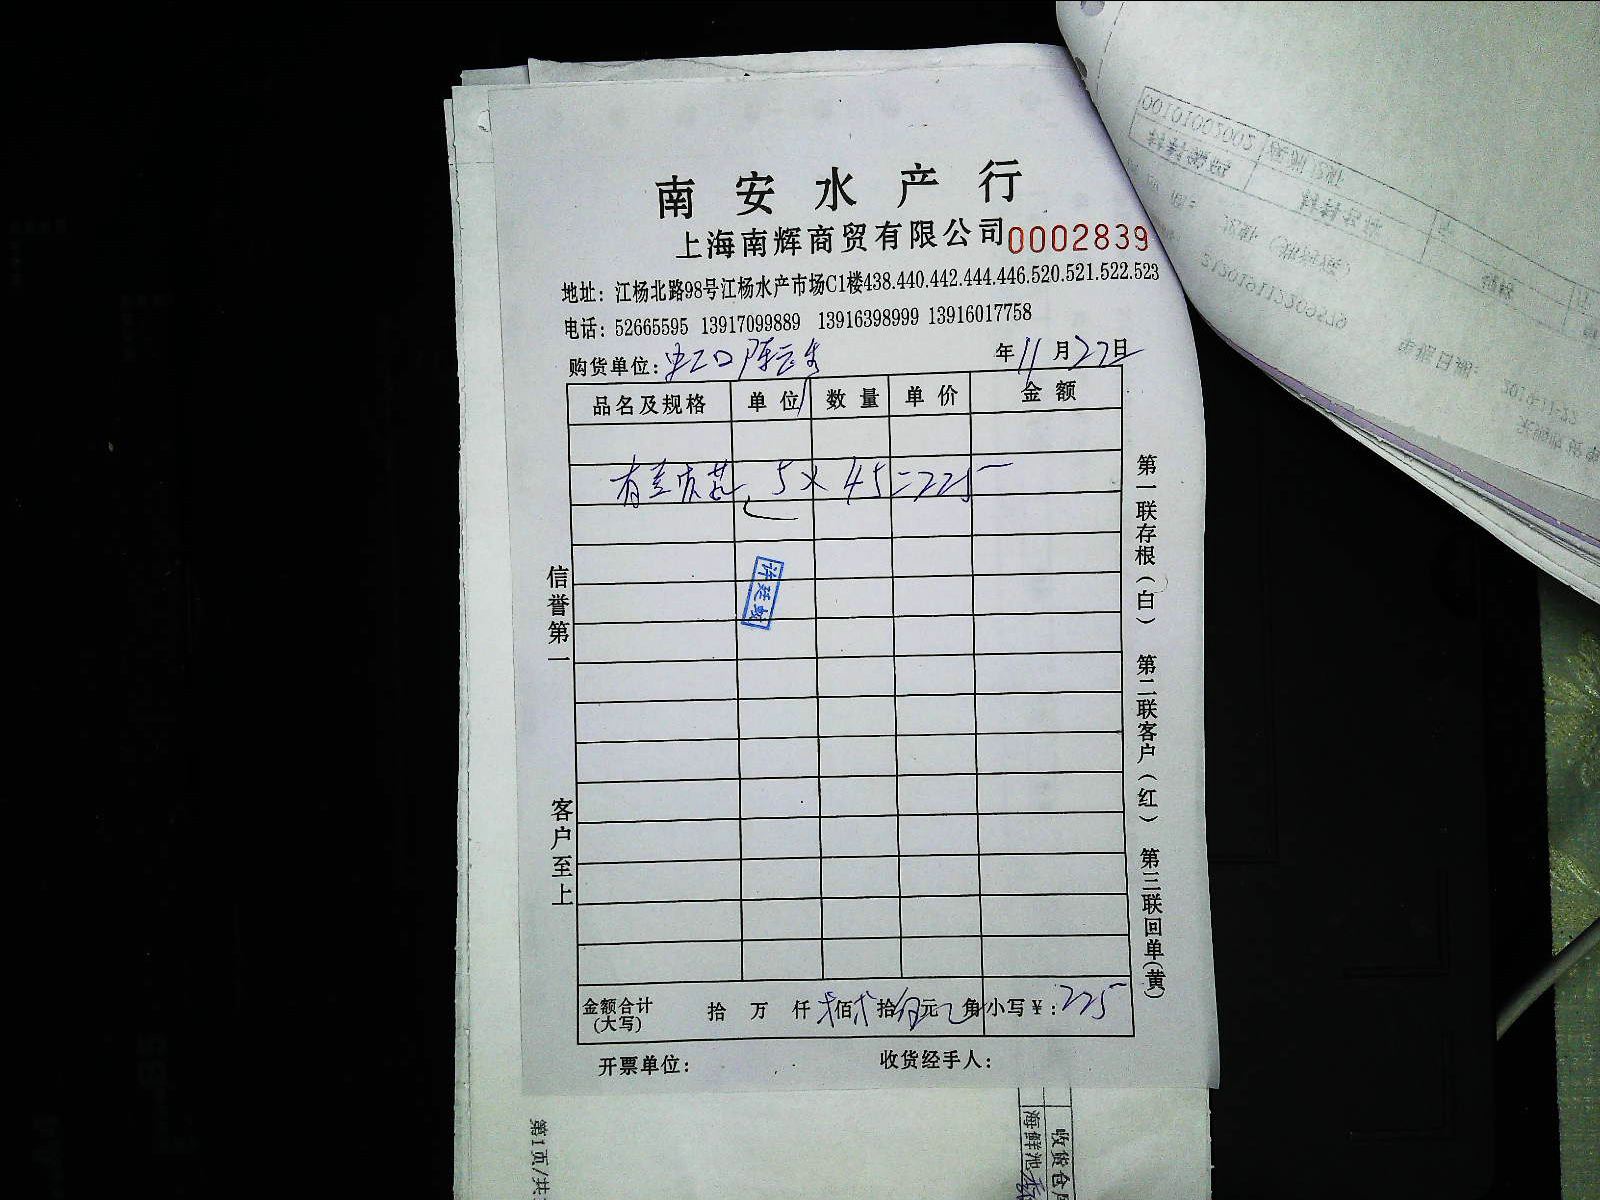 南安水产行
上海南辉商贸有限公司 0002839
地址：江杨北路98号江杨水产市场C1楼438.440.442.444.446.520.521.522.523
电话：52665595 13917099889 13916398999 13916017758
购货单位： 年11月27日
品名及规格 单位 数量 单价 金额
5×45=225
信誉第一
客户至上
第一联存根（白） 第二联客户（红） 第三联回单（黄）
金额合计（大写） 拾 万 仟 贰佰 拾 元 角 小写￥：225
开票单位： 收货经手人：
第1页/共
海鲜池
收货仓